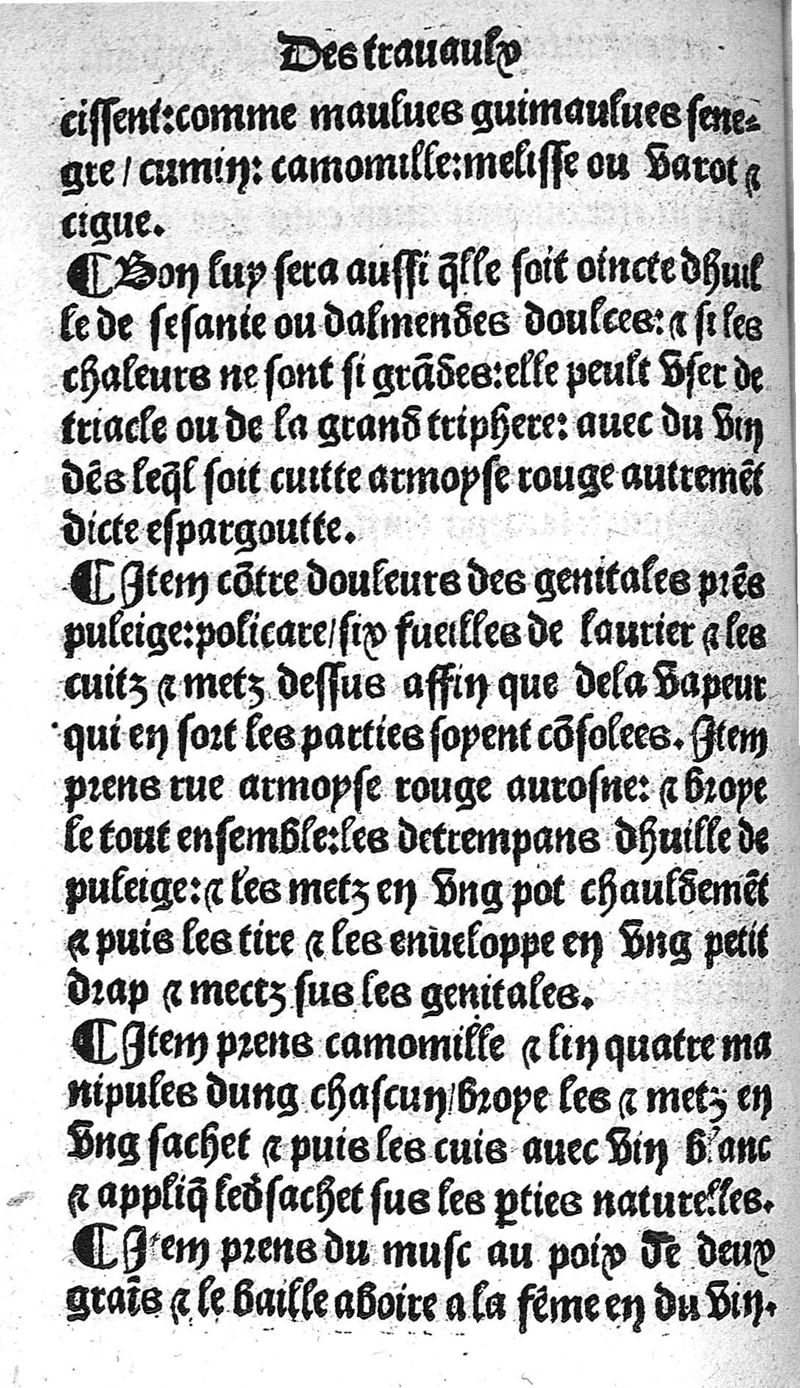 Des trauaulx
cissent:comme maulues guimaulues sene⸗
gre / cumin: camomille:melisse ou varot ⁊
cigue.
¶ Bon luy sera aussi q̃lle soit oincte dhuil
le de sesanie ou dalmendes doulces: ⁊ si les
chaleurs ne sont si grãdes:elle peult vser de
triacle ou de la grand triphere: auec du vin
dẽs leq̃l soit cuitte armoyse rouge autremẽt
dicte espargoutte.
¶ Item cõtre douleurs des genitales prẽs
puleige:policare/six fueilles de laurier ⁊ les
cuitz ⁊ metz dessus affin que dela vapeur
qui en sort les parties soyent cõsolees. Item
prens rue armoyse rouge aurosne: ⁊ broye
le tout ensemble:les detrempans dhuille de
puleige:⁊ les metz en vng pot chauldemẽt
⁊ puis les tire ⁊ les enueloppe en vng petit
drap ⁊ mectz sus les genitales.
¶ Item prens camomille ⁊ lin quatre ma
nipules dung chascun/broye les ⁊ metz en
vng sachet ⁊ puis les cuis auec vin blanc
⁊ appliq̃ led̃ sachet sus les ꝑties naturelles.
¶ Item prens du musc au poix de deux
graĩs ⁊ le baille aboire a la fẽme en du vin.